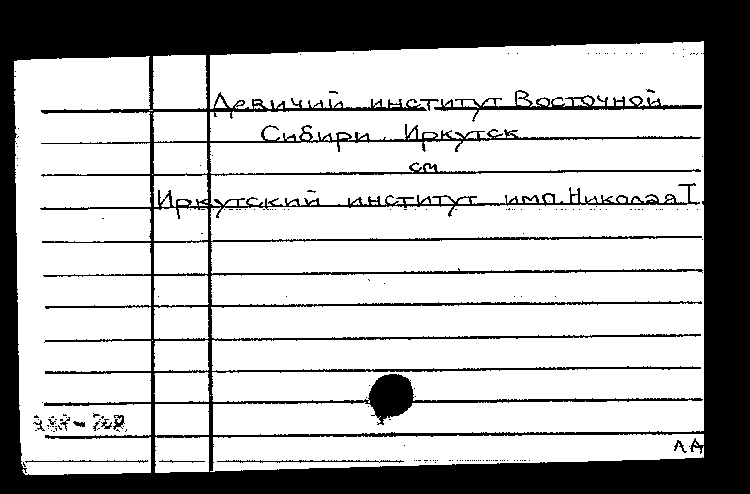 Девичий институт Восточной
Сибири. Иркутск
см
Иркутский институт имп. Николая I.
ЛА